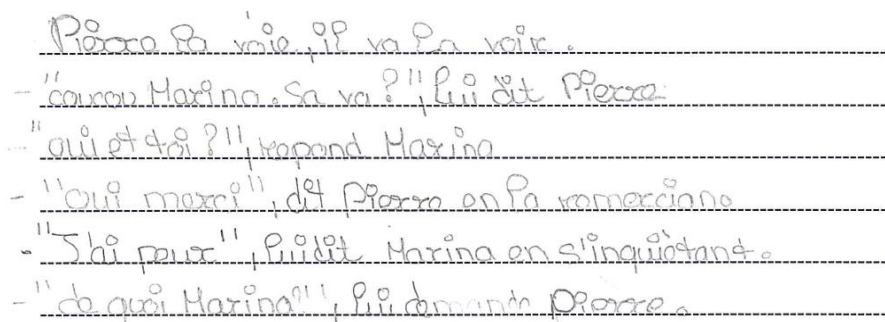 Pierre la voie, il va la voir.
- "coucou Marina. Sa va ?", lui dit Pierre.
- "oui et toi ?", repond Marina
- "oui merci", dit Pierre en la remerciano
- "J'ai peur", lui dit Marina en s'inquiètant.
- "de quoi Marina?", lui demande Pierre.